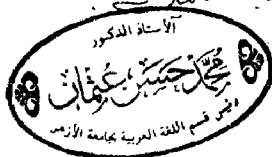 الأستاذ الدكتور
محمد حسن عثمان
رئيس قسم اللغة العربية بجامعة الأزهر